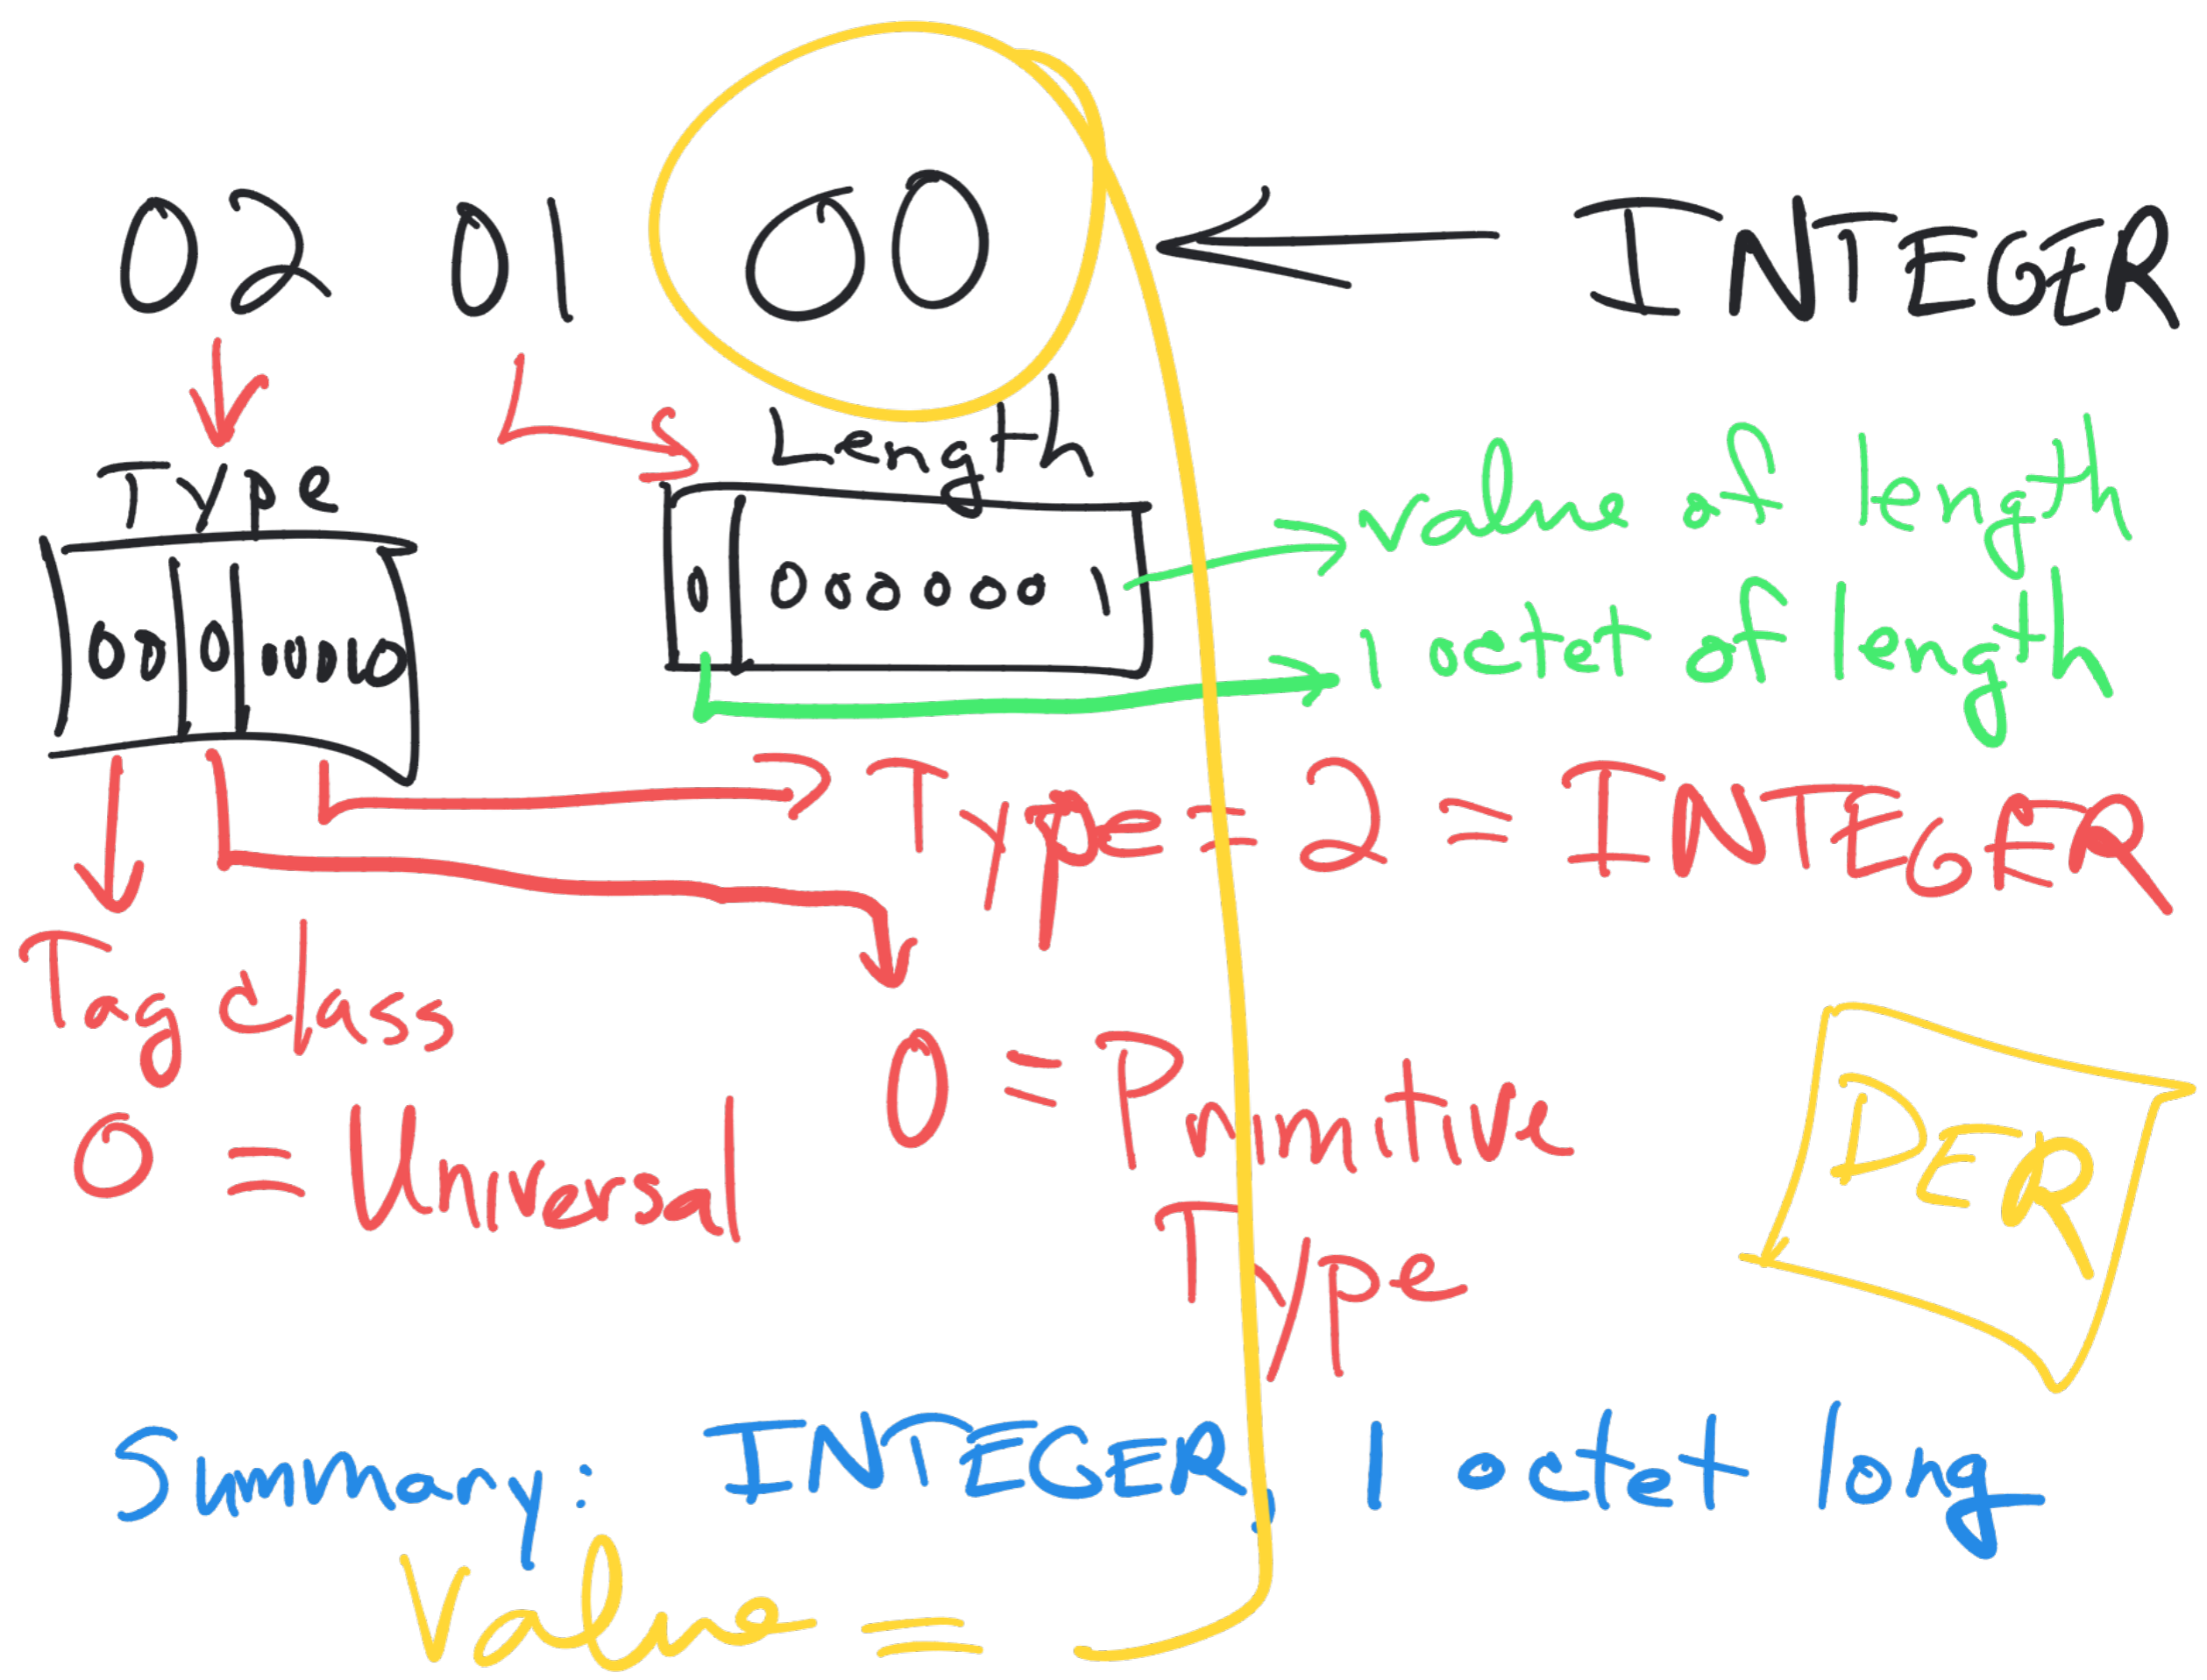 02 01 00 ← INTEGER
Type
00 0 00010
Length
0 0000001
value of length
1 octet of length
Type = 2 = INTEGER
Tag class
0 = Universal
0 = Primitive
Type
DER
Summary: INTEGER, 1 octet long
Value =